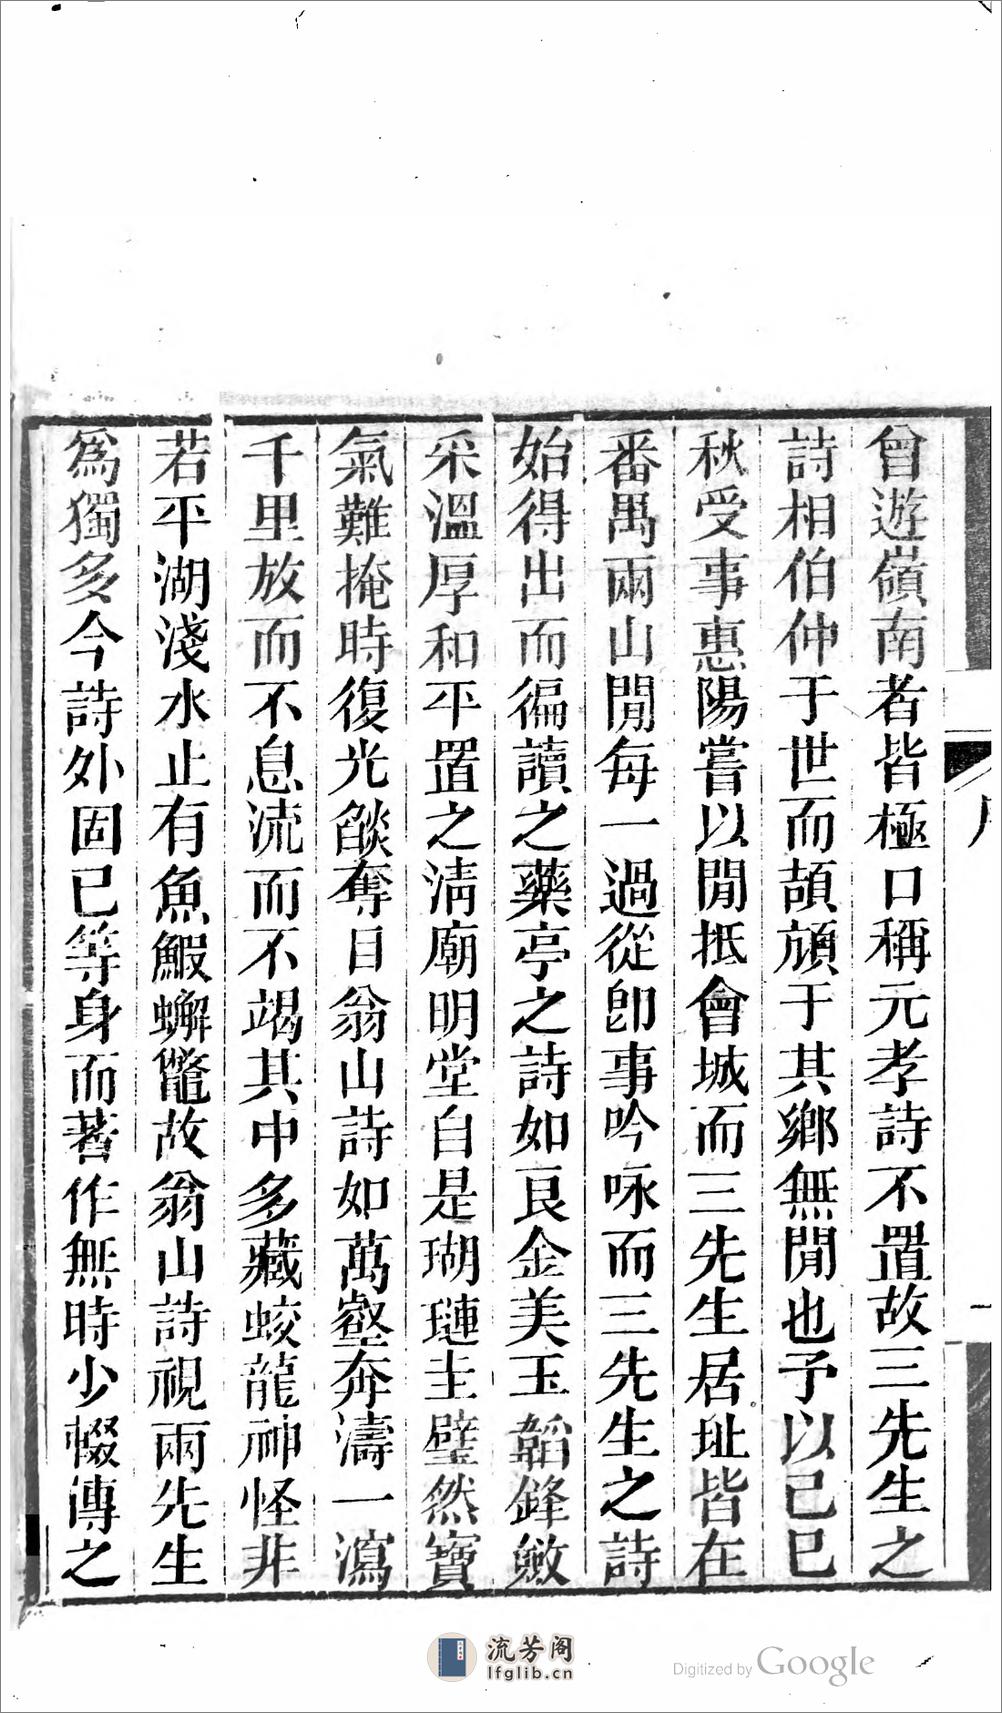 曾遊嶺南者皆極口稱元孝詩不置故三先生之
詩相伯仲于世而頡頏于其鄉無間也予以己巳
秋受事惠陽嘗以閒抵會城而三先生居址皆在
番禺兩山閒每一過從卽事吟咏而三先生之詩
始得出而徧讀之藥亭之詩如良金美玉韜鋒斂
采溫厚和平置之淸廟明堂自是瑚璉圭璧然寶
氣難掩時復光燄奪目翁山詩如萬壑奔濤一瀉
千里放而不息流而不竭其中多藏蛟龍神怪非
若平湖淺水止有魚鰕蠏鼈故翁山詩視兩先生
為獨多今詩外固已等身而著作無時少輟傳之
一
流芳阁
lfglib.cn
Digitized by Google